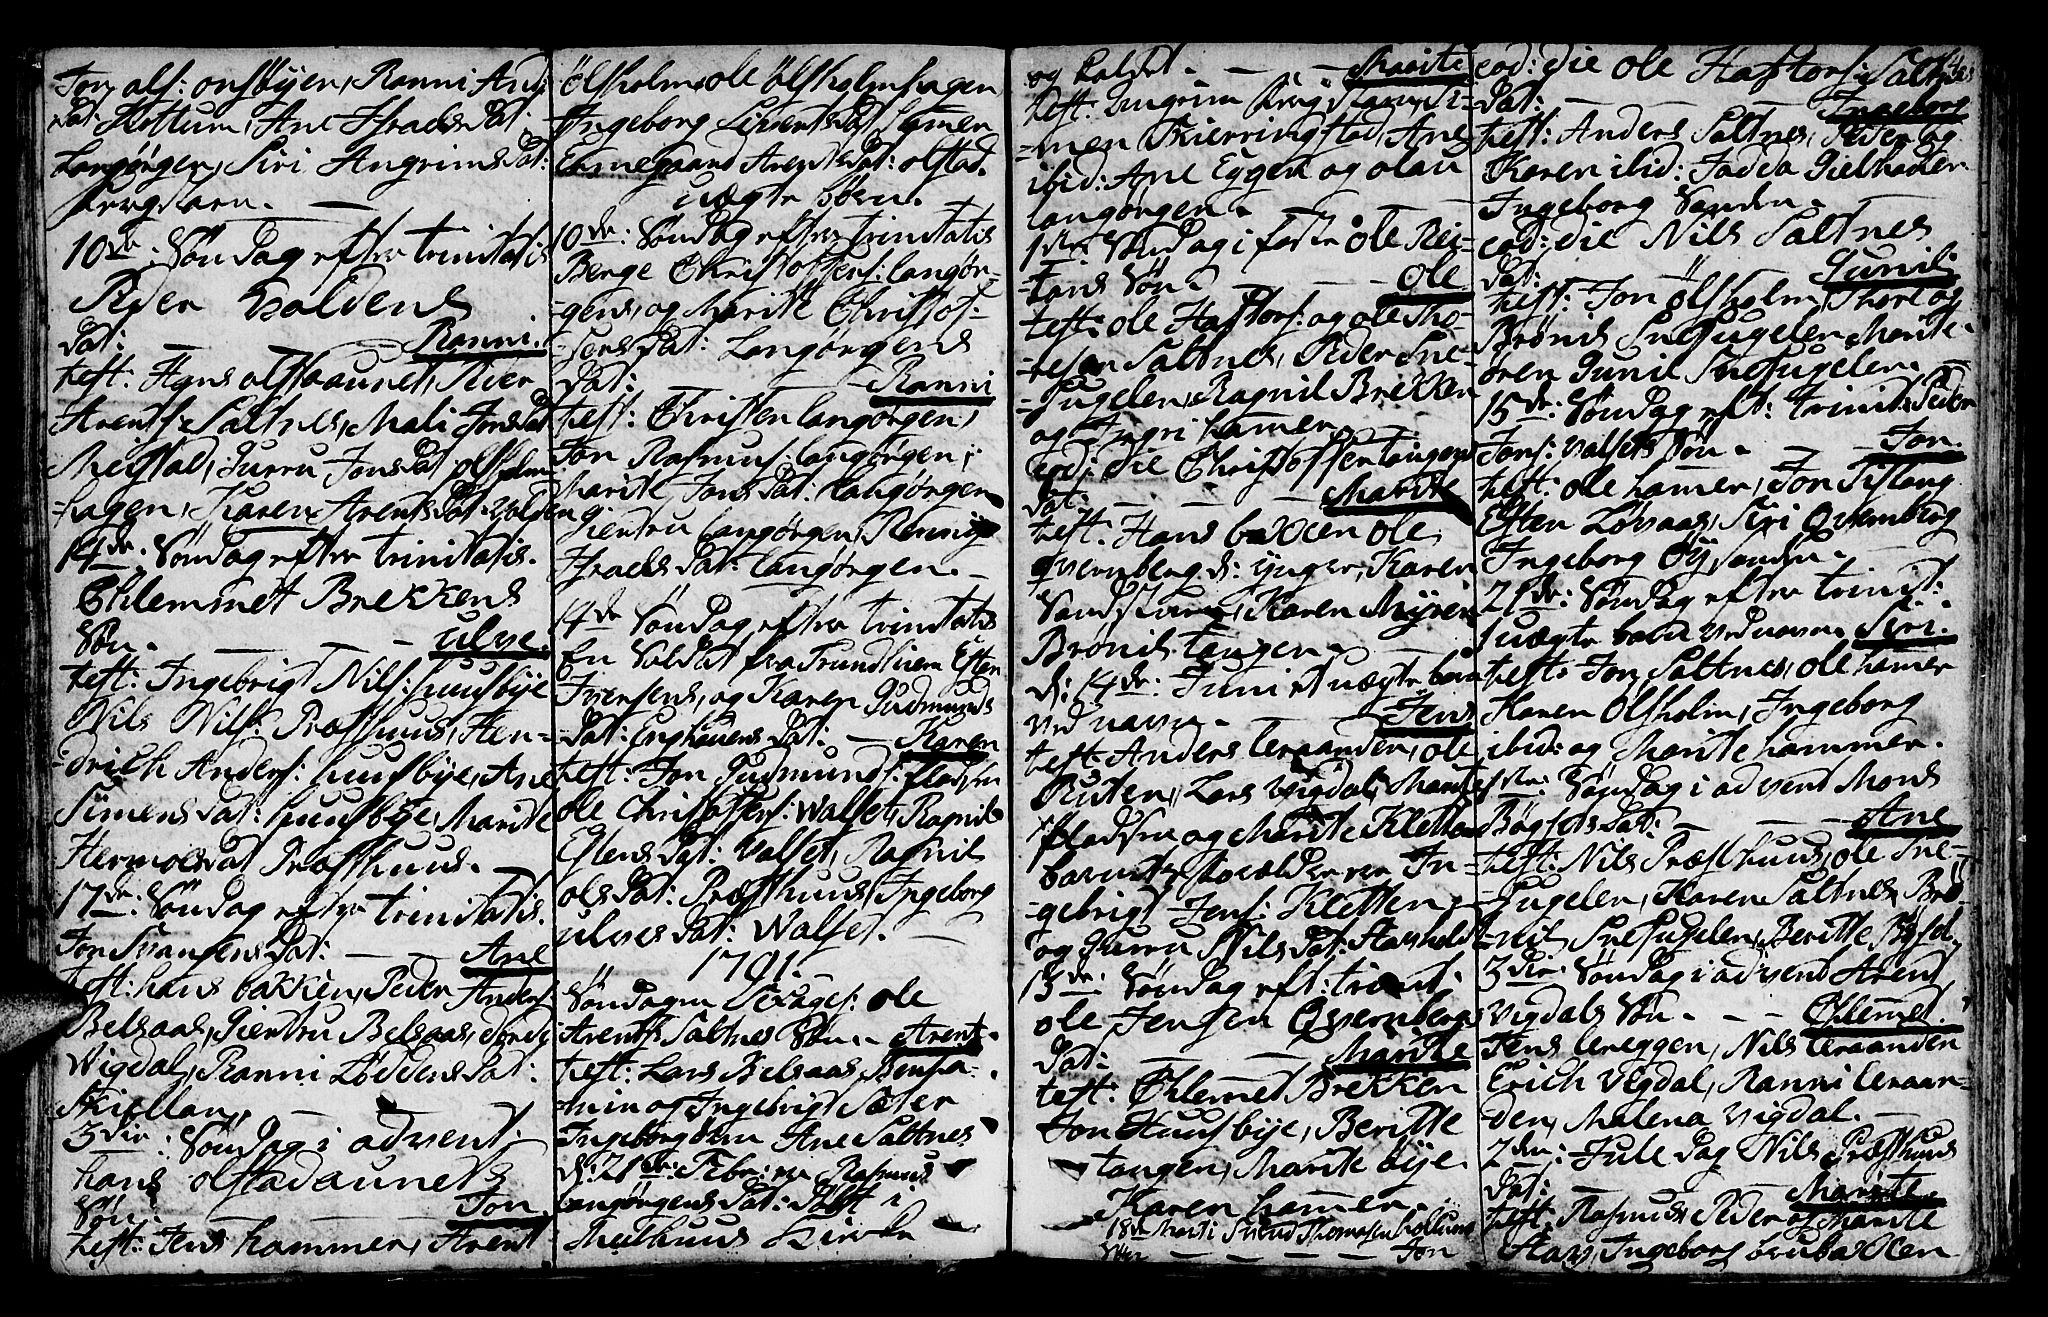 Jon ols: onsbyen, Ranni And
Dat: Kottum, Ane Hraels Dat
Langørgen, Siri Angrims Dat:
10de: Søndag efter trinitatis
Peder Holdens
Dat: — — Ranni.
test: Hans olstaaunet, Peder
Arents: Saltnes, Mali Jons Dat
Meistad, Gurru Jons Dat olsholm
-hagen, Karen Arents Dat Volden
14de: Søndag efter trinitatis.
Chlemmet Brekkens
Søn. — — ulve.
test: Ingebrigt Nils: huusbye
Nils Nils: Præsthuus, Hen-
drich Anders: huusbye, Ane
Simens Dat: huusbye, Marite
Hermoes Dat Præsthuus.
17de: Søndag efter trinitatis.
Jon Svansens Dat: — Ane
test: hans bakken, Peder Anders:
Belsaas, Giertru Belsaas,
Vigdal, Ranni Løddens Dat:
Skiellan,
3die: Søndag i advent.
hans olstadaunets
Søn. — — Jon.
test: Jens hammer, Arent
ølsholm, ole ølsholmhagen
Ingeborg Siverts Dat hamer
Ermegaard Arents Dat: olstad.
uægte børn.
10de: Søndag efter trinitatis
Berge Christoffers: langør-
-gens, og Marite Christof-
-fers Dat: Langørgens
Dat: — — Ranni
test: Christen langørgen,
Jon Rasmus: langørgen,
Marite Jons Dat: langørgen
Giertru langørgen,
Hraels Dat: langørgen. —
14de Søndag efter trinitatis
En Soldat fra Trundhiem Esten
Iversens, og Karen Gudmunds
Dat: Enghauens Dat: — Karen
test: Jon Gudmunds: fladsen
ole Christoffers: Walset, Ragnil
Estens Dat: Valset, Ragnil
ols Dat: Præsthuus, Ingeborg
ulves Dat: Walset. —
1791.
Søndagen Sexages: ole
Arents Saltnes Søn. — Arent.
test: Lars Belsaas, Benja-
min og Ingebrigt Sæter
Ingeborg Ane Saltnes
d: 21de: Febr: Rasmus
langørgens Dat: Døbt i
Melhuus Kirke
og holdet. — — Marite
test: Angrim bergslarn, Si-
-men Kierringstad, Ane
ibid: Ane Eggen og olau
langørgen.
1ste: Søndag i faste ole Rei-
tans Søn. — — Ole
test: ole Hastors: og ole Tho-
resen Saltnes, Peder Sne-
-fugelen, Ragnil Brekken
og Ingri hamer.
eod: die Christoffer tangens
Dat: — — Marite
test: Hans bakken ole
qvernberg d: ynger, Karen
Karen Myren
Brønil tangen. —
d: 14de: Juni et uægte barn
ved navn. — — Jens
test: Anders leraanden, ole
Ruten, Lars vigdal, Marite
fladsen og Marite Kletten
barnets forældre er In-
-gebrigt Jens: Kletten
og Gurru Nils Dat:
13de: Søndag eft: trinit:
ole Jensen Qvernbergs
Dat: — — Marite
test: Chlemet Brekken
Jon Huusbye, Beritte
tangen, Marite bye.
Karen hamer.
18de Marti Sivund Thomesen
Søn — — Jon
eod: die ole Hastors: Saltnes
Dat: — — Ingeborg
test: Anders Saltnes, Peder og
Karen ibid: Jadea Gielhaden
Ingeborg Sanden. —
eod: die Nils Saltnes
Dat: — — Gunil:
test: Jon ølsholm, Thore og
Brønil Snefugelen, Marite
øren Gunil Snefugelen. —
15de: Søndag eft: trinit: Peder
Jons: valsets Søn. — — Jon.
test: ole hamer, Jon
Esten Løvaas, Siri Qvernberg
Ingeborg Øysanden. —
21de: Søndag efter trinit:
1 uægte barn ved navn. Siri.
test: Jon Saltnes, ole hamer
Karen Ølsholm, Ingeborg
ibid: og Marite hammer.
1ste: Søndag i advent Mons
Bøgsets Dat: — — Ane
test: Nils Præsthuus, ole Sne-
-fugelen, Karen Saltnes, Brø-
-nil Snefugelen, Beritte
3die: Søndag i advent Arent
Vigdals Søn. — — Chlemet.
Jens lereggen, Nils leraanden
Erich Vigdal, Ranni leraan-
den, Malena vigdal. —
2den: Jule Dag Nils Præsthuus
Dat: — — Marite.
test: Rasmus, Peder og Marite
Ingeborg brubakken